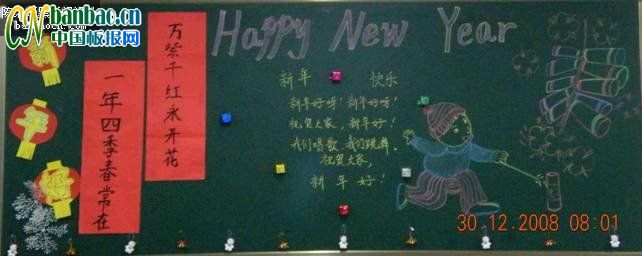 CN banbac.cn
中国板报网
Happy New Year
新
年
好
一年四季春常在
万紫千红永开花
新年 快乐
新年好呀！新年好呀！
祝贺大家，新年好！
我们唱歌，我们跳舞。
祝贺大家，
新年好！
30.12.2008 08:01